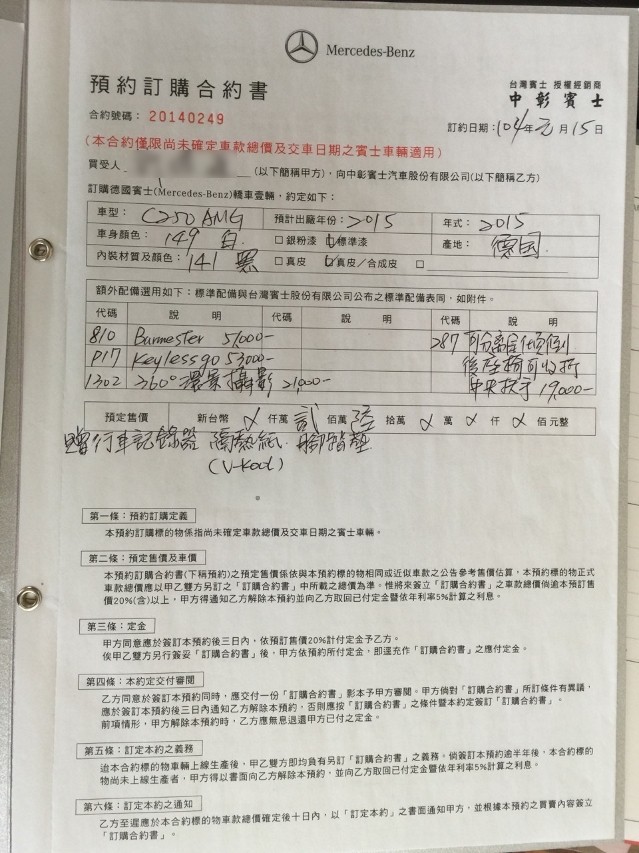 Mercedes-Benz
預約訂購合約書
台灣賓士 授權經銷商
中彰賓士
合約號碼：20140249
訂約日期：104年元月15日
(本合約僅限尚未確定車款總價及交車日期之賓士車輛適用)
買受人 (以下簡稱甲方)，向中彰賓士汽車股份有限公司(以下簡稱乙方)
訂購德國賓士(Mercedes-Benz)轎車壹輛，約定如下：
車型：C250 AMG 預計出廠年份：2015 年式：2015
車身顏色：149 白 □銀粉漆 ☑標準漆 產地：德国
內裝材質及顏色：141 黑 □真皮 ☑真皮／合成皮 □
額外配備選用如下：標準配備與台灣賓士股份有限公司公布之標準配備表同，如附件。
代碼 說明 代碼 說明 代碼 說明
810 Burmester 51,000- 287 可分離式傾倒
P17 Keyless go 53,000- 後座椅可收折
1302 360°環景攝影 21,000- 中央扶手 19,000-
預定售價 新台幣 仟萬 貳 佰萬 陸 拾萬 萬 仟 佰元整
贈行車記錄器 隔熱紙 腳踏墊
(V-Kool)
第一條：預約訂購定義
本預約訂購標的物係指尚未確定車款總價及交車日期之賓士車輛。
第二條：預定售價及車價
本預約訂購合約書(下稱預約)之預定售價係依與本預約標的物相同或近似車款之公告參考售價估算，本預約標的物正式
車款總價應以甲乙雙方另訂之「訂購合約書」中所載之總價為準。惟將來簽立「訂購合約書」之車款總價倘逾本預訂售
價20%(含)以上，甲方得通知乙方解除本預約並向乙方取回已付定金暨依年利率5%計算之利息。
第三條：定金
甲方同意應於簽訂本預約後三日內，依預訂售價20%計付定金予乙方。
俟甲乙雙方另行簽妥「訂購合約書」後，甲方依預約所付定金，即逕充作「訂購合約書」之應付定金。
第四條：本約定交付審閱
乙方同意於簽訂本預約同時，應交付一份「訂購合約書」影本予甲方審閱。甲方倘對「訂購合約書」所訂條件有異議，
應於簽訂本預約後三日內通知乙方解除本預約，否則應按「訂購合約書」之條件暨本約定簽訂「訂購合約書」。
前項情形，甲方解除本預約時，乙方應無息退還甲方已付之定金。
第五條：訂定本約之義務
迨本合約標的物車輛上線生產後，甲乙雙方即均負有另訂「訂購合約書」之義務。倘簽訂本預約逾半年後，本合約標的
物尚未上線生產者，甲方得以書面向乙方解除本預約，並向乙方取回已付定金暨依年利率5%計算之利息。
第六條：訂定本約之通知
乙方至遲應於本合約標的物車款總價確定後十日內，以「訂定本約」之書面通知甲方，並根據本預約之買賣內容簽立
「訂購合約書」。